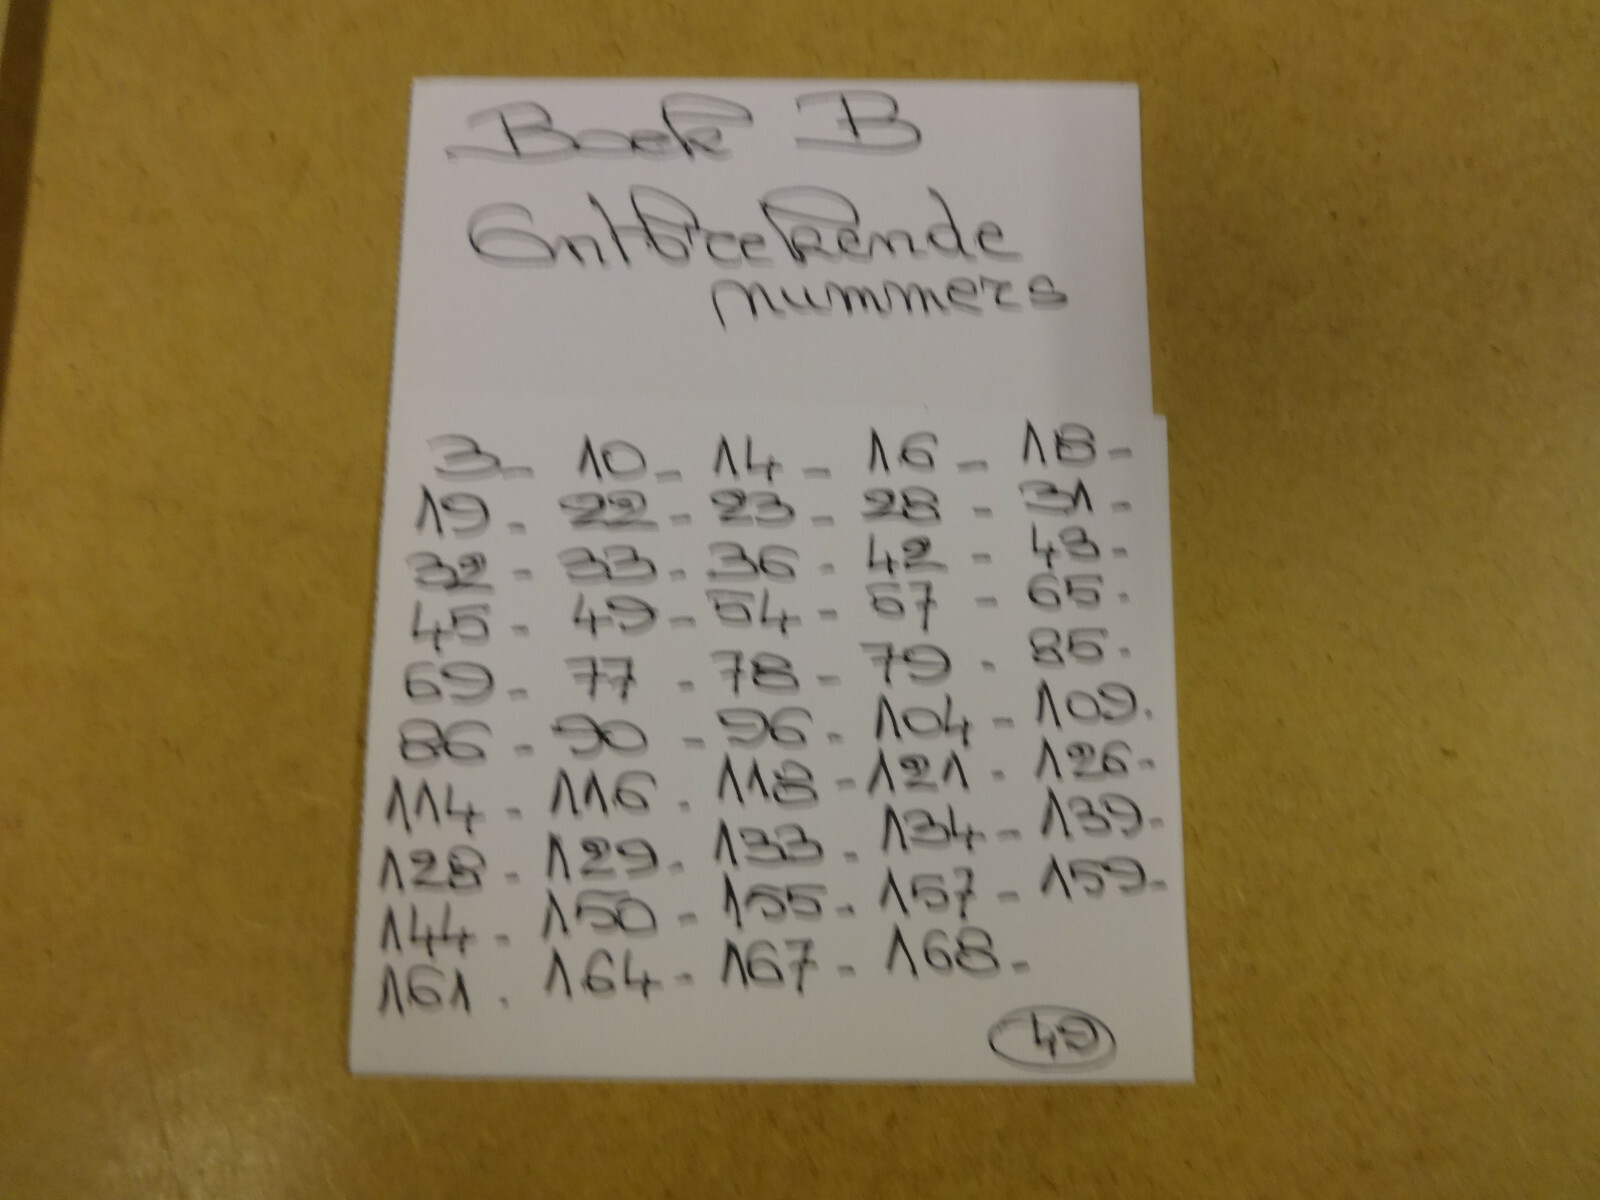 Boek B
Ontbreekende
nummers
3 - 10 - 14 - 16 - 18 -
19 - 22 - 23 - 28 - 31 -
32 - 33 - 36 - 42 - 43 -
45 - 49 - 54 - 57 - 65 -
69 - 77 - 78 - 79 - 85 -
86 - 90 - 96 - 104 - 109 -
114 - 116 - 118 - 121 - 126 -
128 - 129 - 133 - 134 - 139 -
144 - 150 - 155 - 157 - 159 -
161 - 164 - 167 - 168 -
49